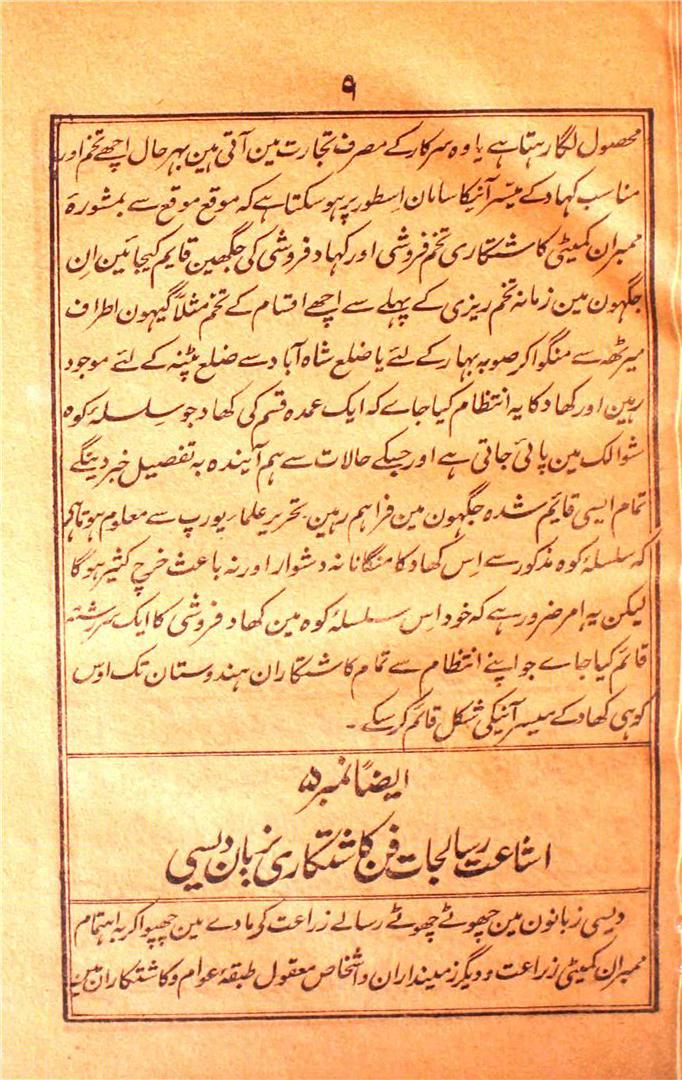 ۹
محصول لگا رہتا ہے یا وہ سرکار کے مصرف تجارت مین آتی ہین بہر حال اچھے تخم اور
مناسب کہاد کے میسر آنیکا سامان اِسطور پر ہو سکتا ہے کہ موقع موقع سے بمشورۂ
ممبران کمیٹی کاشتکاری تخم فروشی اور کہاد فروشی کی جگھین قایم کیجائین اِن
جگہون مین زمانہ تخم ریزی کے پہلے سے اچھے اقسام کے تخم مثلاً گیہون اطراف
میرٹھ سے منگوا کر صوبہ بہار کے لئے یا ضلع شاہ آباد سے ضلع پٹنہ کے لئے موجود
رہین اور کھاد کا یہ انتظام کیا جاے کہ ایک عمدہ قسم کی کھاد جو سِلسلۂ کوہ
شوالک مین پائی جاتی ہے اور جسکے حالات سے ہم آیندہ بہ تفصیل خبر دینگے
تمام ایسی قایم شدہ جگہون مین فراہم رہین۔ تحریر علماء یورپ سے معلوم ہوتا ہی
کہ سلسلۂ کوہ مذکور سے اِس کھاد کا منگانا نہ دشوار اور نہ باعث خرچ کثیر ہوگا
لیکن یہ امر ضرور ہے کہ خود اِس سلسلۂ کوہ مین کھاد فروشی کا ایک سررشتہ
قائم کیا جاے جو اپنے انتظام سے تمام کاشتکاران ہندوستان تک اوس
کوہی کھاد کے میسر آنیکی شکل قائم کر سکے۔
ایضاً نمبر ۵
اشاعت رسالجات فن کاشتکاری بزبان دیسی
دیسی زبانون مین چھوٹے چھوٹے رسالے زراعت کے مادے مین چھپوا کر بہ اہتمام
ممبران کمیٹی زراعت و دیگر زمینداران و اشخاص معقول طبقۂ عوام و کاشتکاران مین